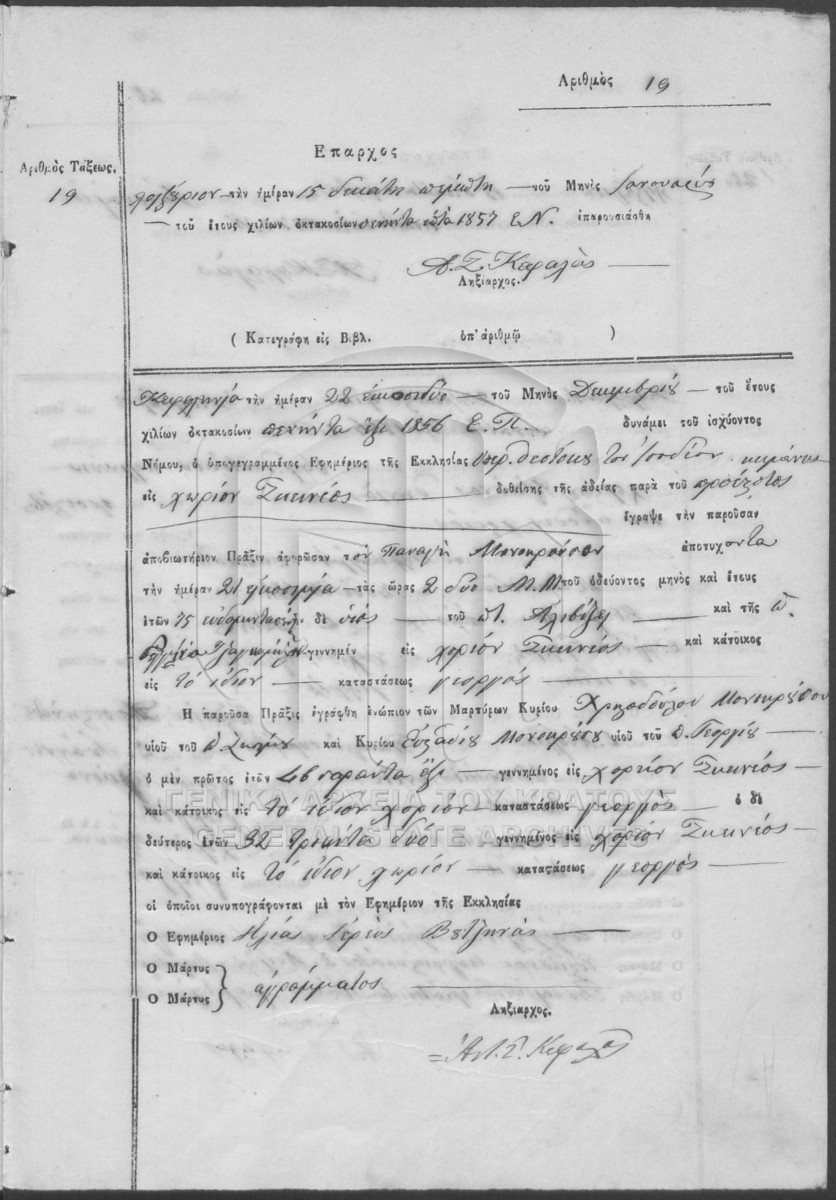 Αριθμὸς 19
Επαρχος
Αριθμὸς Τάξεως.
19
Ληξούριον τὴν ἡμέραν 15 δεκάτη πέμπτη τοῦ Μηνὸς Ιανουαρίου
τοῦ ἔτους χιλίων ὀκτακοσίων πενήντα ἑπτὰ 1857 Ε. Ν. ἐπαρουσιάσθη
Α. Σ. Κεφαλᾶς
Ληξίαρχος.
( Κατεγράφη εἰς Βιβλ. ὑπ' ἀριθμῷ )
Κεφαλληνία τὴν ἡμέραν 22 εἰκοσιδύο τοῦ Μηνὸς Δικεμβρίου τοῦ ἔτους
χιλίων ὀκτακοσίων πενήντα ἕξι 1856 Ε. Π. δυνάμει τοῦ ἰσχύοντος
Νόμου, ὁ ὑπογεγραμμένος Εφημέριος τῆς Εκκλησίας Υπερ. Θεοτόκου τον Ισοδίον κειμένης
εἰς χωρίον Σκινέος δοθείσης τῆς ἀδείας παρὰ τοῦ
ἔγραψε τὴν παροῦσαν
ἀποβιωτήριον Πρᾶξιν ἀφορῶσαν τὸν Παναγὴ ἀποτυχοντα
τὴν ἡμέραν 21 τὰς ὥρας 2 δύο Μ. Μ τοῦ ὁδεύοντος μηνὸς καὶ ἔτους
ἐτῶν 75 δὲ υἱὸς τοῦ π. Αλιβίζη καὶ τῆς π.
γεννημέν εἰς χορίον Σκινέος καὶ κάτοικος
εἰς τὸ ἴδιον καταστάσεως γεοργὸς
Η παροῦσα Πρᾶξις ἐγράφθη ἐνώπιον τῶν Μαρτύρων Κυρίου Χριστοδούλου
υἱοῦ τοῦ π Σπύρου καὶ Κυρίου υἱοῦ τοῦ π. Γεοργίου
ὁ μὲν πρῶτος ἐτῶν 46 σαράντα ἕξι γεννημένος εἰς χορίον Σκινέος
καὶ κάτοικος εἰς τὸ ἴδιον χορίον καταστάσεως γεοργὸς ὁ δὲ
δεύτερος ἐτῶν 32 τριάντα δυό γεννημένος εἰς χορίον Σκινέος
καὶ κάτοικος εἰς τὸ ἴδιον χωρίον καταστάσεως γεοργὸς
οἱ ὁποῖοι συνυπογράφονται μὲ τὸν Εφημέριον τῆς Εκκλησίας
Ο Εφημέριος Ηλίας Ιερεὺς
Ο Μάρτυς
Ο Μάρτυς
ἀγράμματος
Ληξίαρχος.
Αν. Σ. Κεφαλᾶς
ΓΕΝΙΚΑ ΑΡΧΕΙΑ ΤΟΥ ΚΡΑΤΟΥΣ
GENERAL STATE ARCHIVES